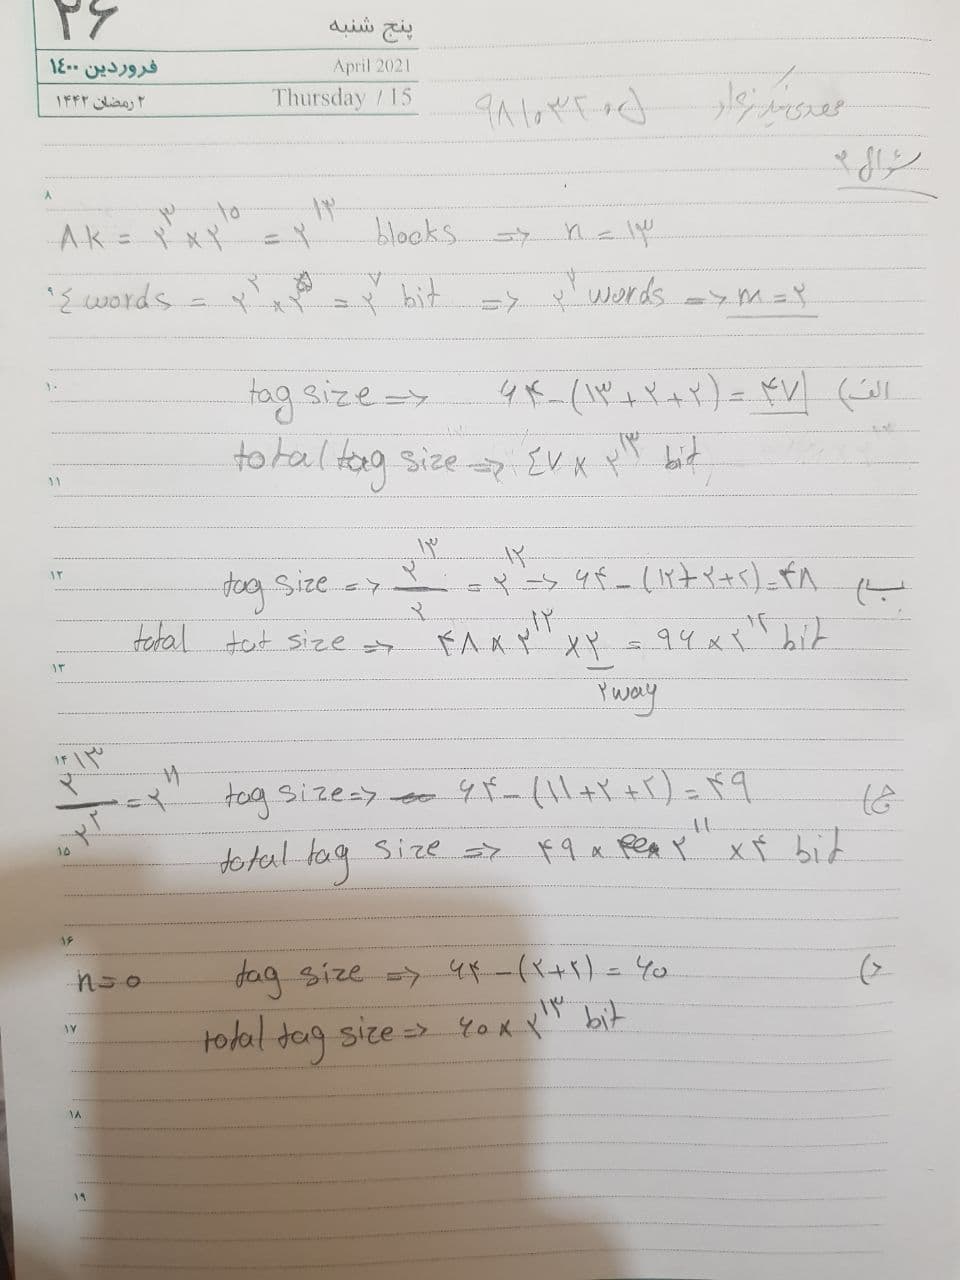 ۲۶
پنج شنبه
فروردین ۱۴۰۰
April 2021
۲ رمضان ۱۴۴۲
Thursday / 15
سؤال ۲
۸
۸K = ۲^۳ × ۲^۱۰ = ۲^۱۳ blocks => n = ۱۳
۹
٤ words = ۲^۲ × ۲^۵ = ۲^۷ bit => ۲^۲ words => m = ۲
۱۰
الف) tag size => ۶۴ - (۱۳ + ۲ + ۲) = ۴۷
total tag size => ٤۷ × ۲^۱۳ bit
۱۱
۱۲
ب) tag size => ۲^۱۳ / ۲ = ۲^۱۲ => ۶۴ - (۱۲ + ۲ + ۲) = ۴۸
total tat size => ۴۸ × ۲^۱۲ × ۲ = ۹۶ × ۲^۱۲ bit
۱۳
۲ way
۱۴
ج) ۲^۱۳ / ۲^۲ = ۲^۱۱ tag size => ۶۴ - (۱۱ + ۲ + ۲) = ۴۹
۱۵
total tag size => ۴۹ × ۲^۱۱ × ۴ bit
۱۶
د) n = ۰ tag size => ۶۴ - (۲ + ۲) = ۶۰
۱۷
total tag size => ۶۰ × ۲^۱۳ bit
۱۸
۱۹